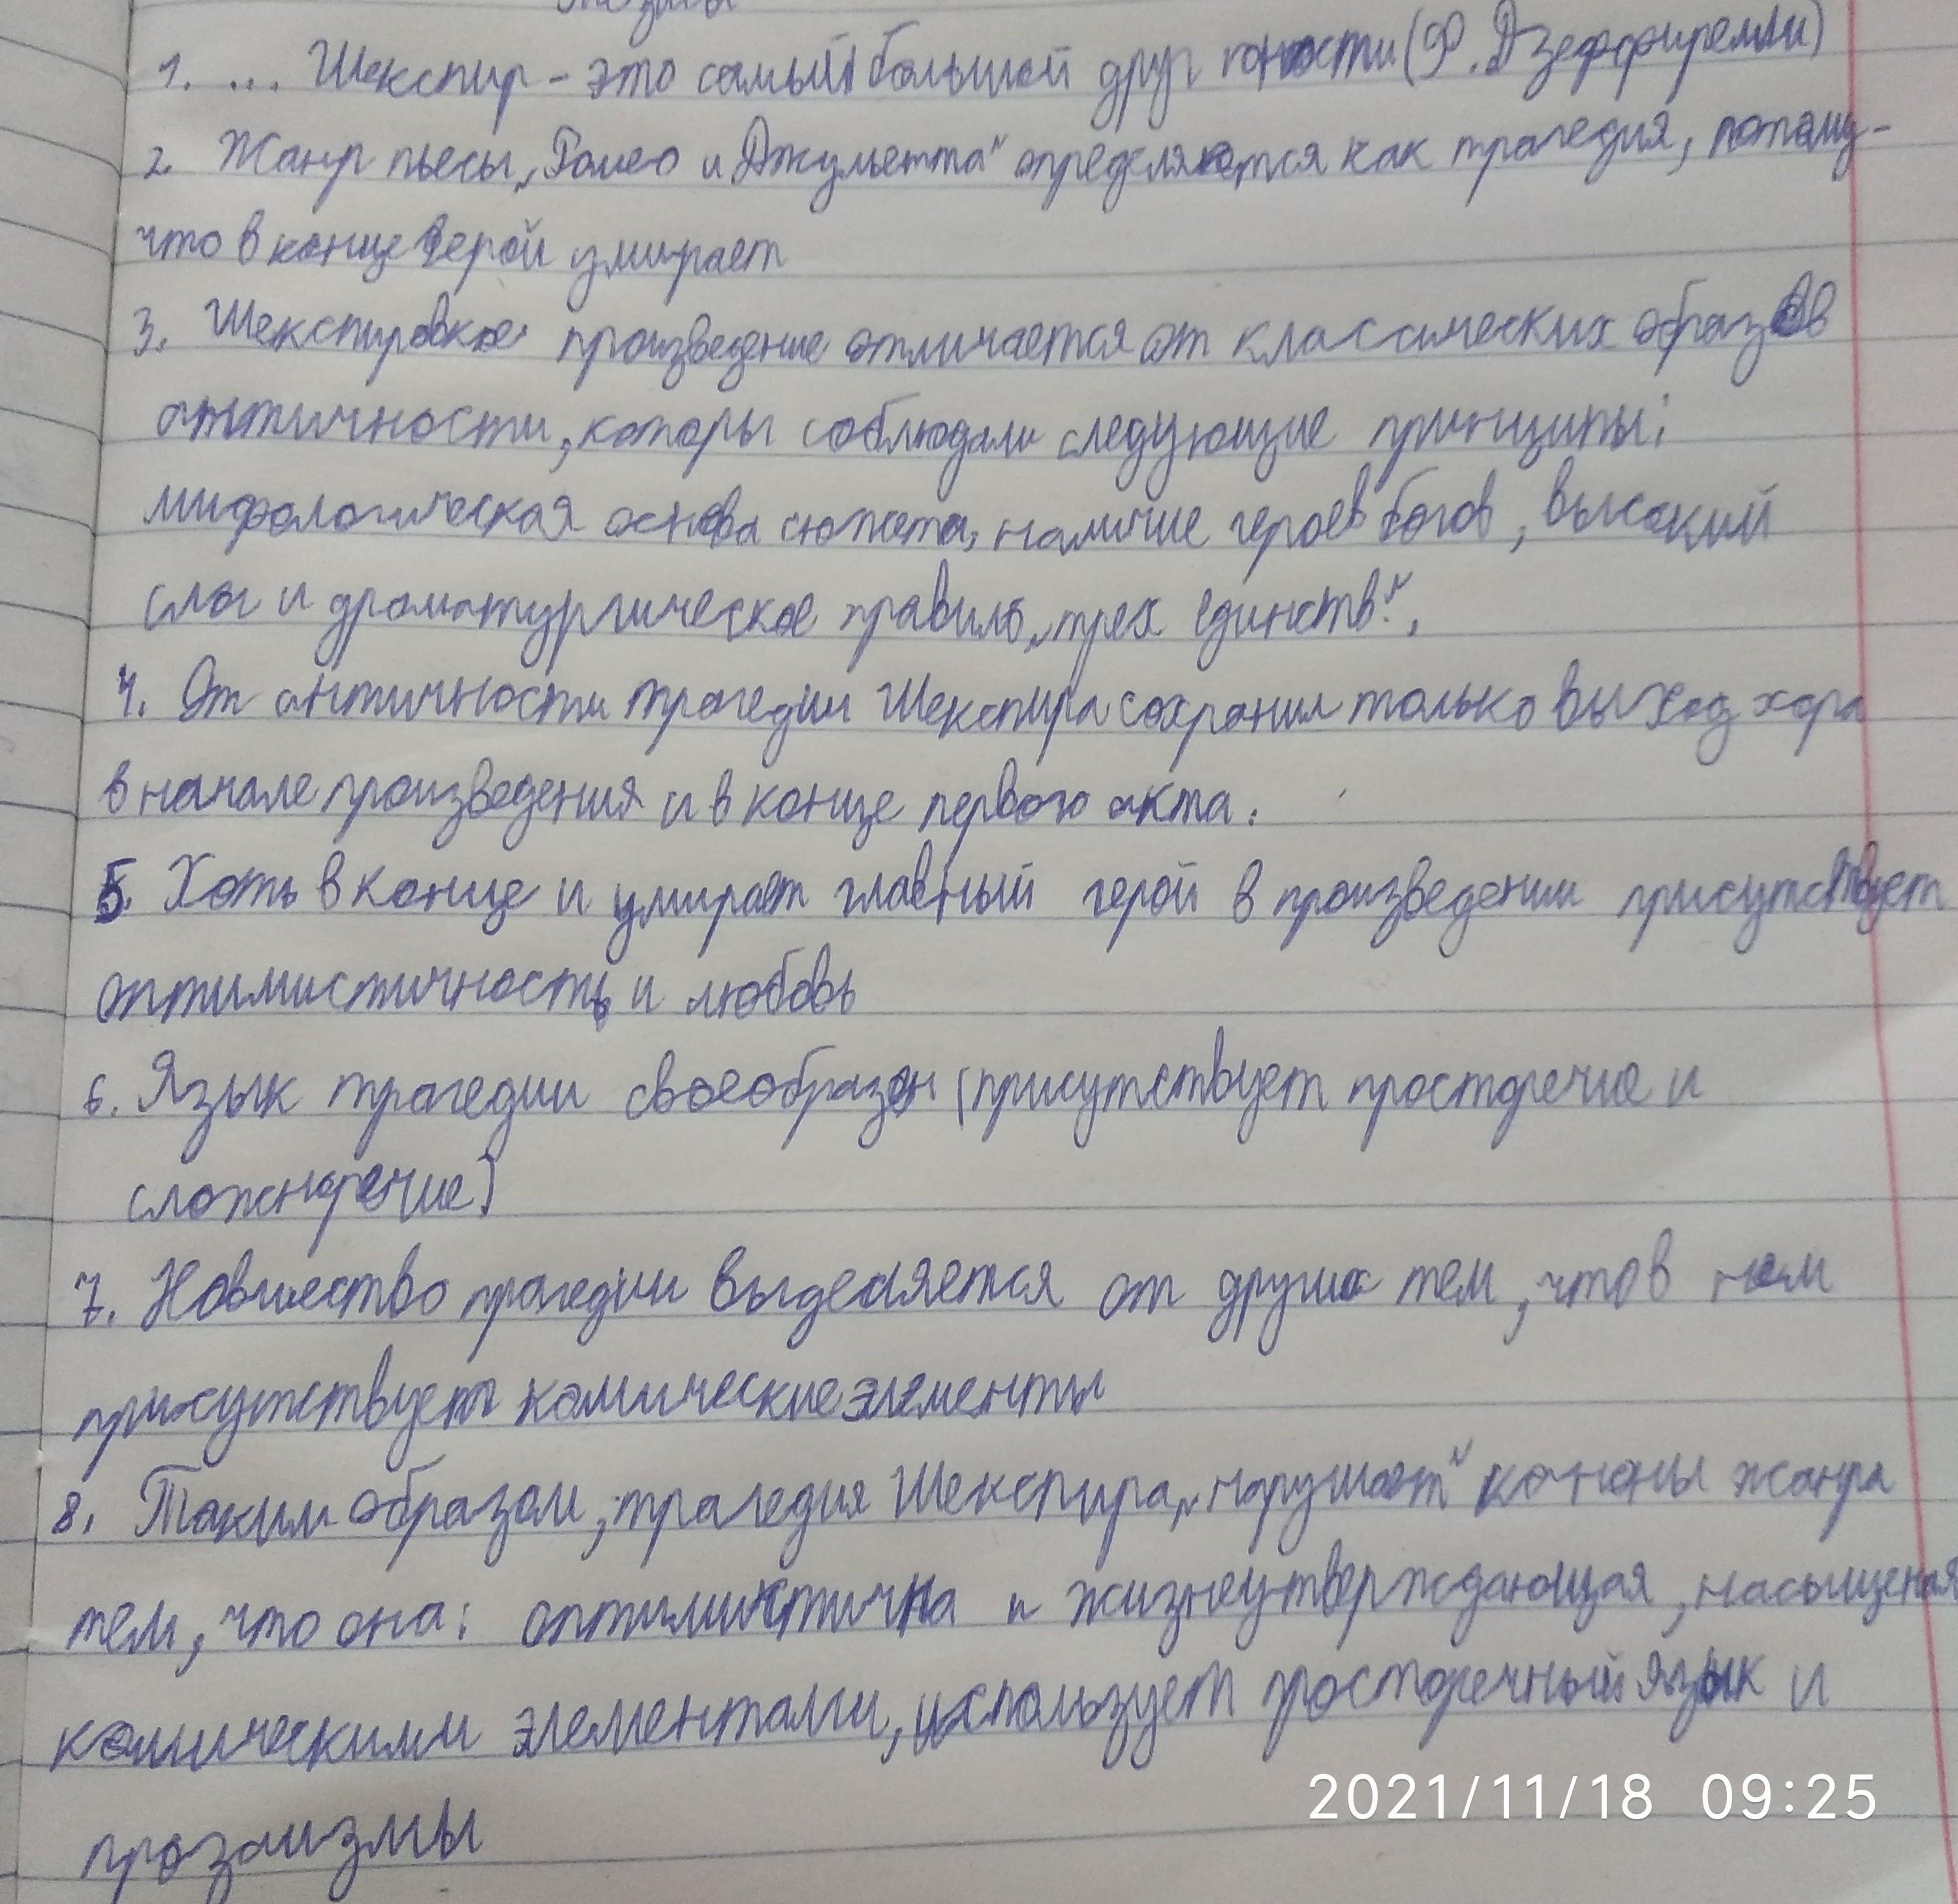 Тезисы
1. ... Шекспир - это самый большой друг юности (Ф. Дзеффирелли)
2. Жанр пьесы „Ромео и Джульетта" определяется как трагедия, потому-
что в конце герой умирает
3. Шекспировкое произведение отличается от классических образов
античности, которы соблюдали следующие принципы:
мифологическая основа сюжета, наличие героев богов, высокий
слог и драматургическое правило „трех единств".
4. От античности трагедии Шекспира сохранил только выход хора
в начале произведения и в конце первого акта.
5. Хоть в конце и умирает главный герой в произведении присутствует
оптимистичность и любовь
6. Язык трагедии своеобразен (присутствует просторечие и
сложноречие)
7. Новшество трагедии выделяется от других тем, что в нем
присутствует комические элементы
8. Таким образом, трагедия Шекспира „нарушает" каноны жанра
тем, что она: оптимистична и жизнеутверждающая, насыщеная
комическими элементами, использует просторечный язык и
прозаизмы
2021/11/18 09:25